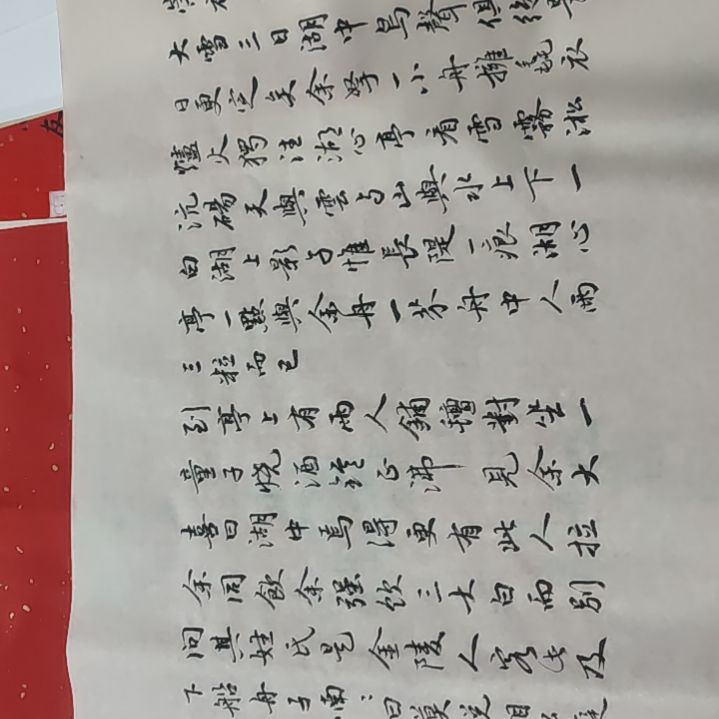 大雪三日湖中鳥聲俱絕是
日更定矣余拏一小舟擁毳衣
爐火獨往湖心亭看雪霧淞
沆碭天與雲与山與水上下一
白湖上影子惟長隄一痕湖心
亭一點與余舟一芥舟中人兩
三粒而已
到亭上有兩人鋪氊對坐一
童子烧酒鑪正沸見余大
喜曰湖中焉得更有此人拉
余同飲余强饮三大白而别
问其姓氏是金陵人客此及
下船舟子喃〻曰莫说相